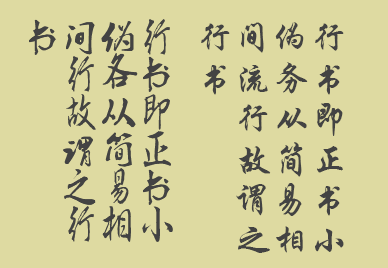 行书即正书小
伪务从简易相
间流行故谓之
行书
行书即正书小
伪各从简易相
间行故谓之行
书